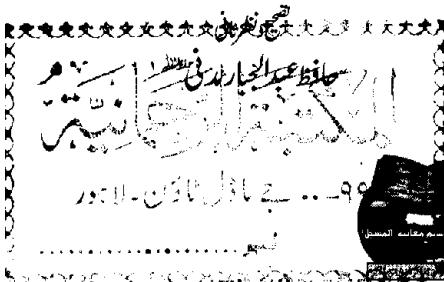 تصحیح و نظرثانی
حافظ عبدالجبار مدنی
المکتبۃ الرحمانیۃ
۹۹... جے ماڈل ٹاؤن ۔ لاہور
نمبر ....................